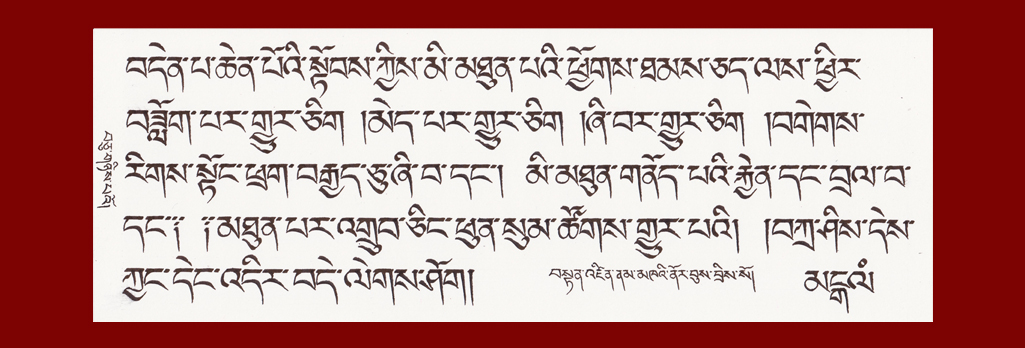 བདེན་པ་ཆེན་པོའི་སྟོབས་ཀྱིས་མི་མཐུན་པའི་ཕྱོགས་ཐམས་ཅད་ལས་ཕྱིར་
བཟློག་པར་གྱུར་ཅིག །མེད་པར་གྱུར་ཅིག །ཞི་བར་གྱུར་ཅིག །བགེགས་
རིགས་སྟོང་ཕྲག་བརྒྱད་ཅུ་ཞི་བ་དང་། མི་མཐུན་གནོད་པའི་རྐྱེན་དང་བྲལ་བ་
དང་༔ ༔མཐུན་པར་འགྲུབ་ཅིང་ཕུན་སུམ་ཚོགས་གྱུར་པའི། །བཀྲ་ཤིས་དེས་
ཀྱང་དེང་འདིར་བདེ་ལེགས་ཤོག།
བསྟན་འཛིན་ནམ་མཁའི་ནོར་བུས་བྲིས་སོ།
མངྒལཾ